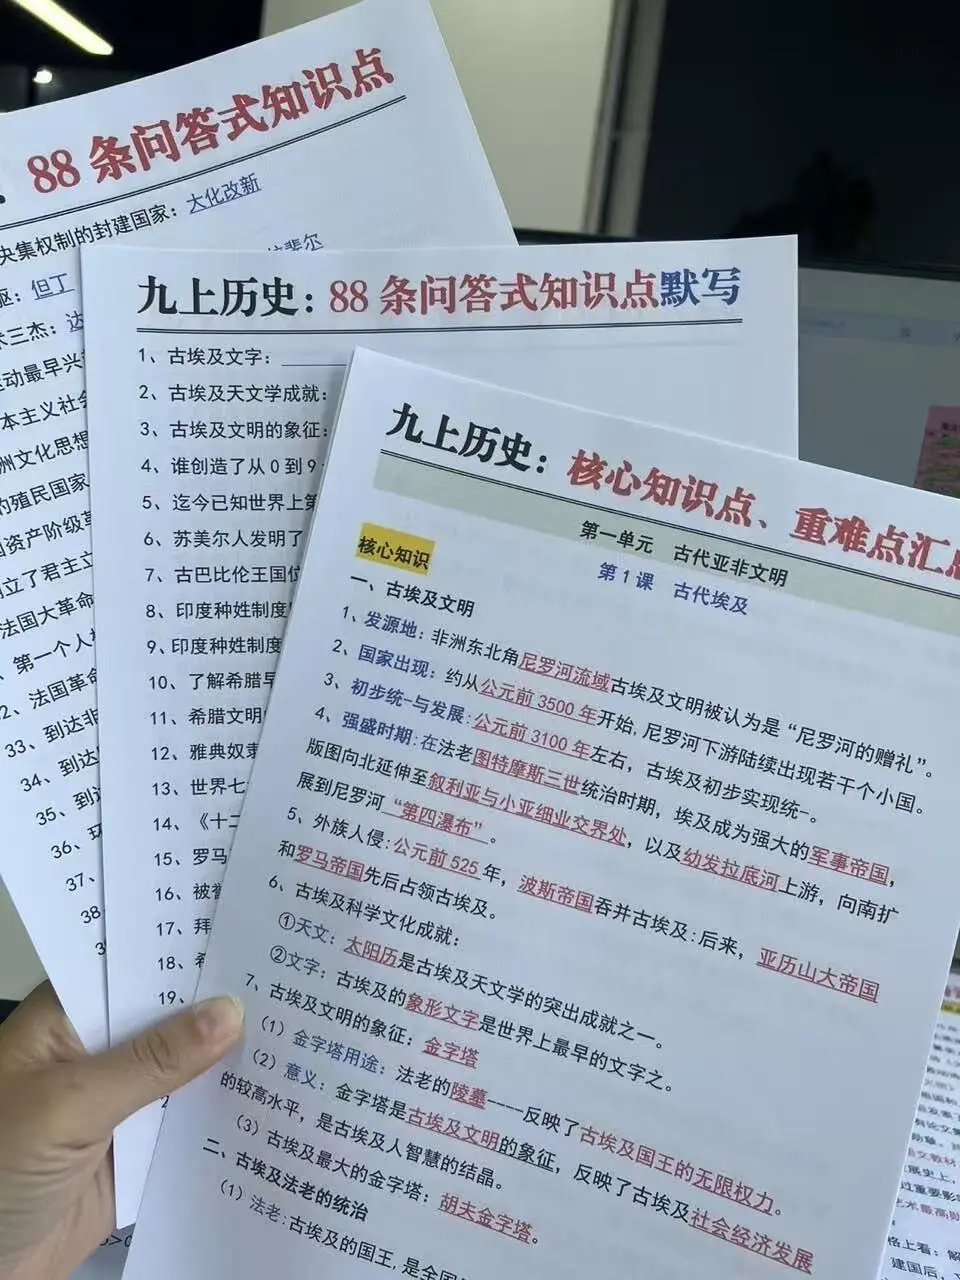 88 条问答式知识点
央集权制的封建国家：大化改新
驱：但丁
术三杰：达
拉斐尔
运动最早兴
本主义社会
洲文化思想
的殖民国家
国资产阶级革
创立了君主立
法国大革命
、第一个人
2、法国革命
33、到达非
34、到达
35、到达
36、环
37、
38
九上历史：88 条问答式知识点默写
1、古埃及文字：
2、古埃及天文学成就：
3、古埃及文明的象征：
4、谁创造了从 0 到 9
5、迄今已知世界上第
6、苏美尔人发明了
7、古巴比伦王国位
8、印度种姓制度
9、印度种姓制度
10、了解希腊早
11、希腊文明
12、雅典奴隶
13、世界七
14、《十二
15、罗马
16、被誉
17、拜
18、希
19、
2
九上历史：核心知识点、重难点汇总
第一单元 古代亚非文明
第 1 课 古代埃及
核心知识
一、古埃及文明
1、发源地：非洲东北角尼罗河流域古埃及文明被认为是“尼罗河的赠礼”。
2、国家出现：约从公元前 3500 年开始，尼罗河下游陆续出现若干个小国。
3、初步统一与发展：公元前 3100 年左右，古埃及初步实现统一。
4、强盛时期：在法老图特摩斯三世统治时期，埃及成为强大的军事帝国，
版图向北延伸至叙利亚与小亚细业交界处，以及幼发拉底河上游，向南扩
展到尼罗河“第四瀑布”。
5、外族人侵：公元前 525 年，波斯帝国吞并古埃及：后来，亚历山大帝国
和罗马帝国先后占领古埃及。
6、古埃及科学文化成就：
①天文：太阳历是古埃及天文学的突出成就之一。
②文字：古埃及的象形文字是世界上最早的文字之。
7、古埃及文明的象征：金字塔
（1）金字塔用途：法老的陵墓----反映了古埃及国王的无限权力。
（2）意义：金字塔是古埃及文明的象征，反映了古埃及社会经济发展
的较高水平，是古埃及人智慧的结晶。
（3）古埃及最大的金字塔：胡夫金字塔。
二、古埃及法老的统治
（1）法老：古埃及的国王，是全国